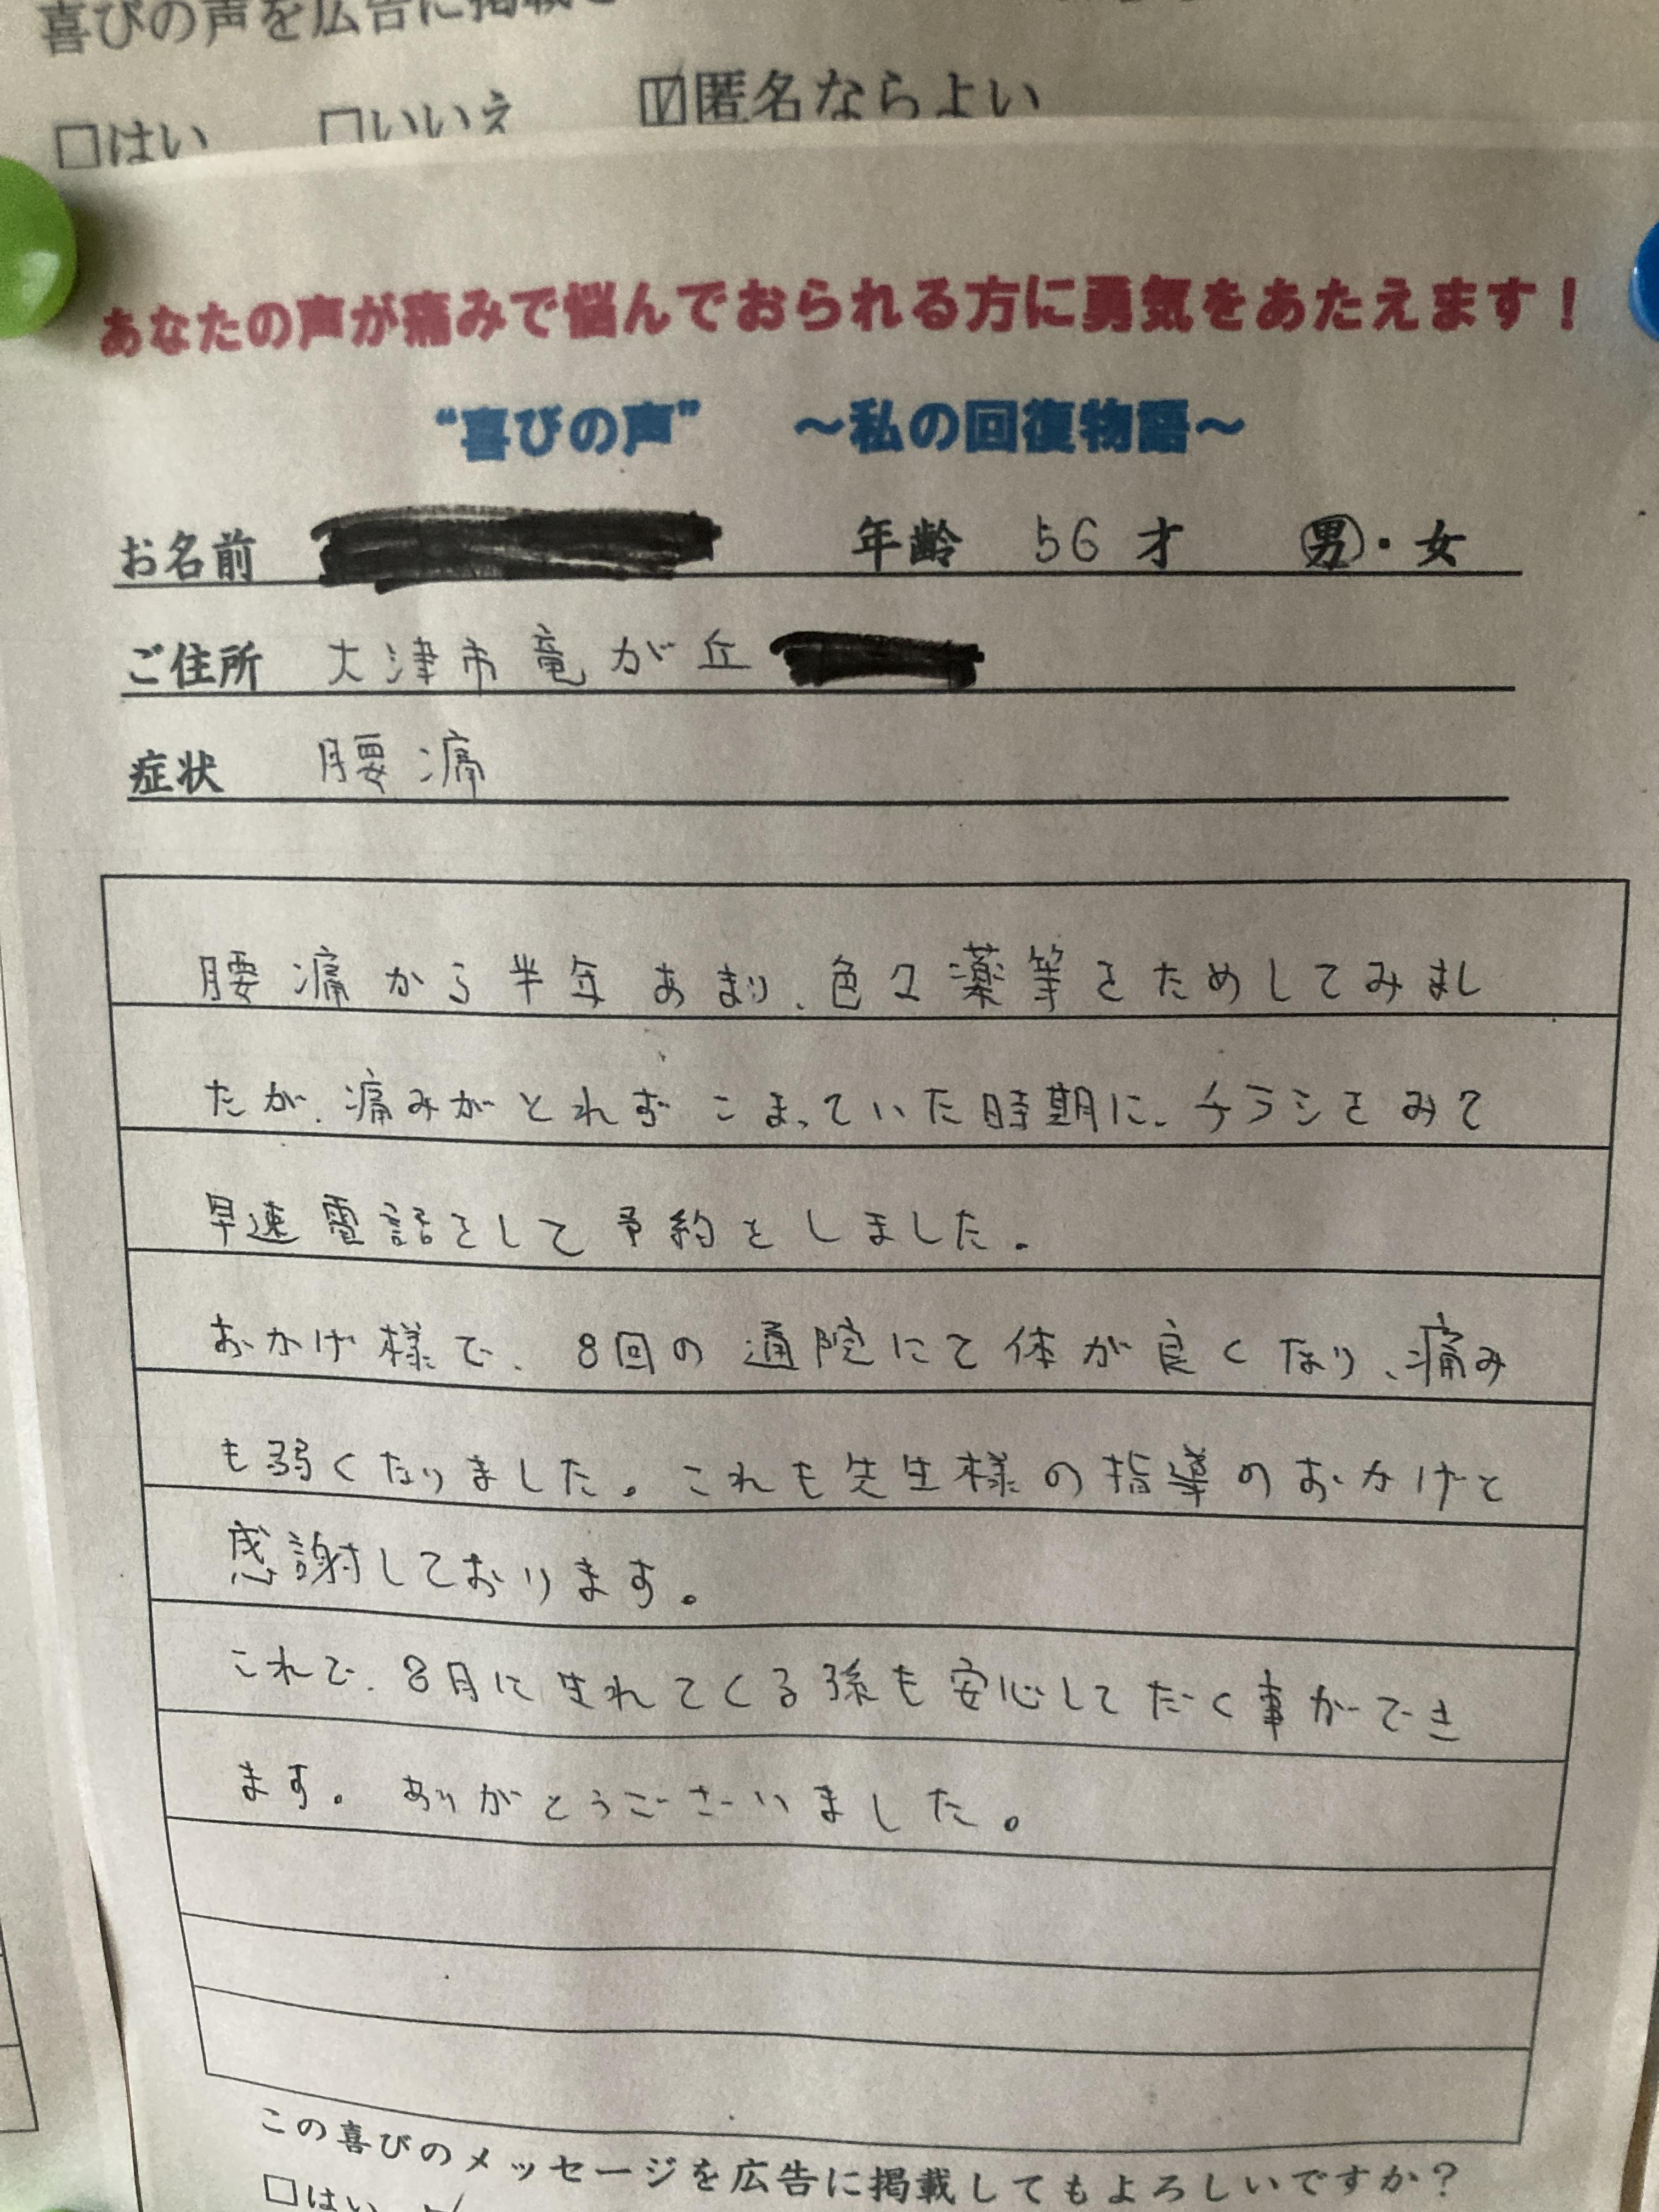 喜びの声を広告に掲載
□はい □いいえ ☑匿名ならよい
あなたの声が痛みで悩んでおられる方に勇気をあたえます！
“喜びの声” ～私の回復物語～
お名前 年齢 56才 男・女
ご住所 大津市竜が丘
症状 腰痛
腰痛から半年あまり、色々薬等をためしてみまし
たが、痛みがとれずこまっていた時期に、チラシをみて
早速電話をして予約をしました。
おかげ様で、8回の通院にて体が良くなり、痛み
も弱くなりました。これも先生様の指導のおかげと
感謝しております。
これで、8月に生れてくる孫も安心してだく事ができ
ます。ありがとうございました。
この喜びのメッセージを広告に掲載してもよろしいですか？
□はい